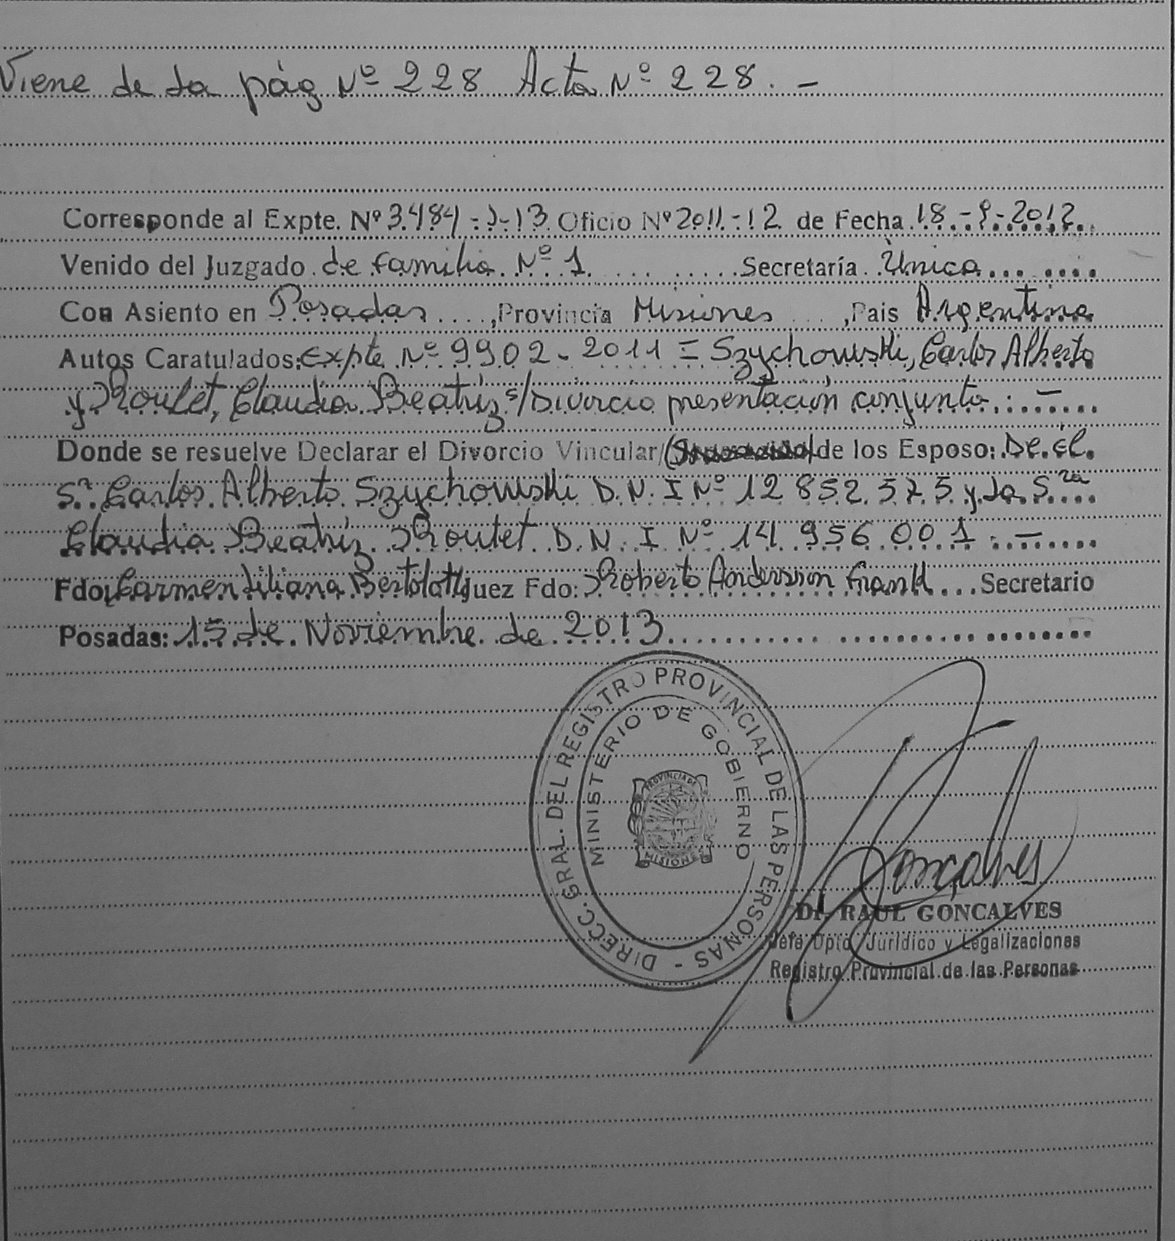 Viene de la pág Nº 228 Acta Nº 228. -
Corresponde al Expte. Nº 3484-J-13 Oficio Nº 2011-12 de Fecha 18-9-2012.
Venido del Juzgado de familia Nº 1 Secretaría Única
Con Asiento en Posadas, Provincia Misiones, Pais Argentina
Autos Caratulados: Expte Nº 9902-2011 = Szychowski, Carlos Alberto
y Roulet, Claudia Beatriz s/Divorcio presentación conjunta.: -
Donde se resuelve Declarar el Divorcio Vincular/ de los Esposo: De él
Sr. Carlos Alberto Szychowski D.N.I Nº 12 852 575 y la Sra
Claudia Beatriz Roulet D.N.I Nº 14 956 001 : -
Fdo: Carmen Liliana Bertolotti Juez Fdo: Roberto Andersson Frank Secretario
Posadas: 15 de Noviembre de 2013
DIRECC. GRAL. DEL REGISTRO PROVINCIAL DE LAS PERSONAS -
MINISTERIO DE GOBIERNO
PROVINCIA DE
MISIONES
Goncalves
Dr. RAUL GONCALVES
Jefe Dpto. Jurídico y Legalizaciones
Registro Provincial de las Personas